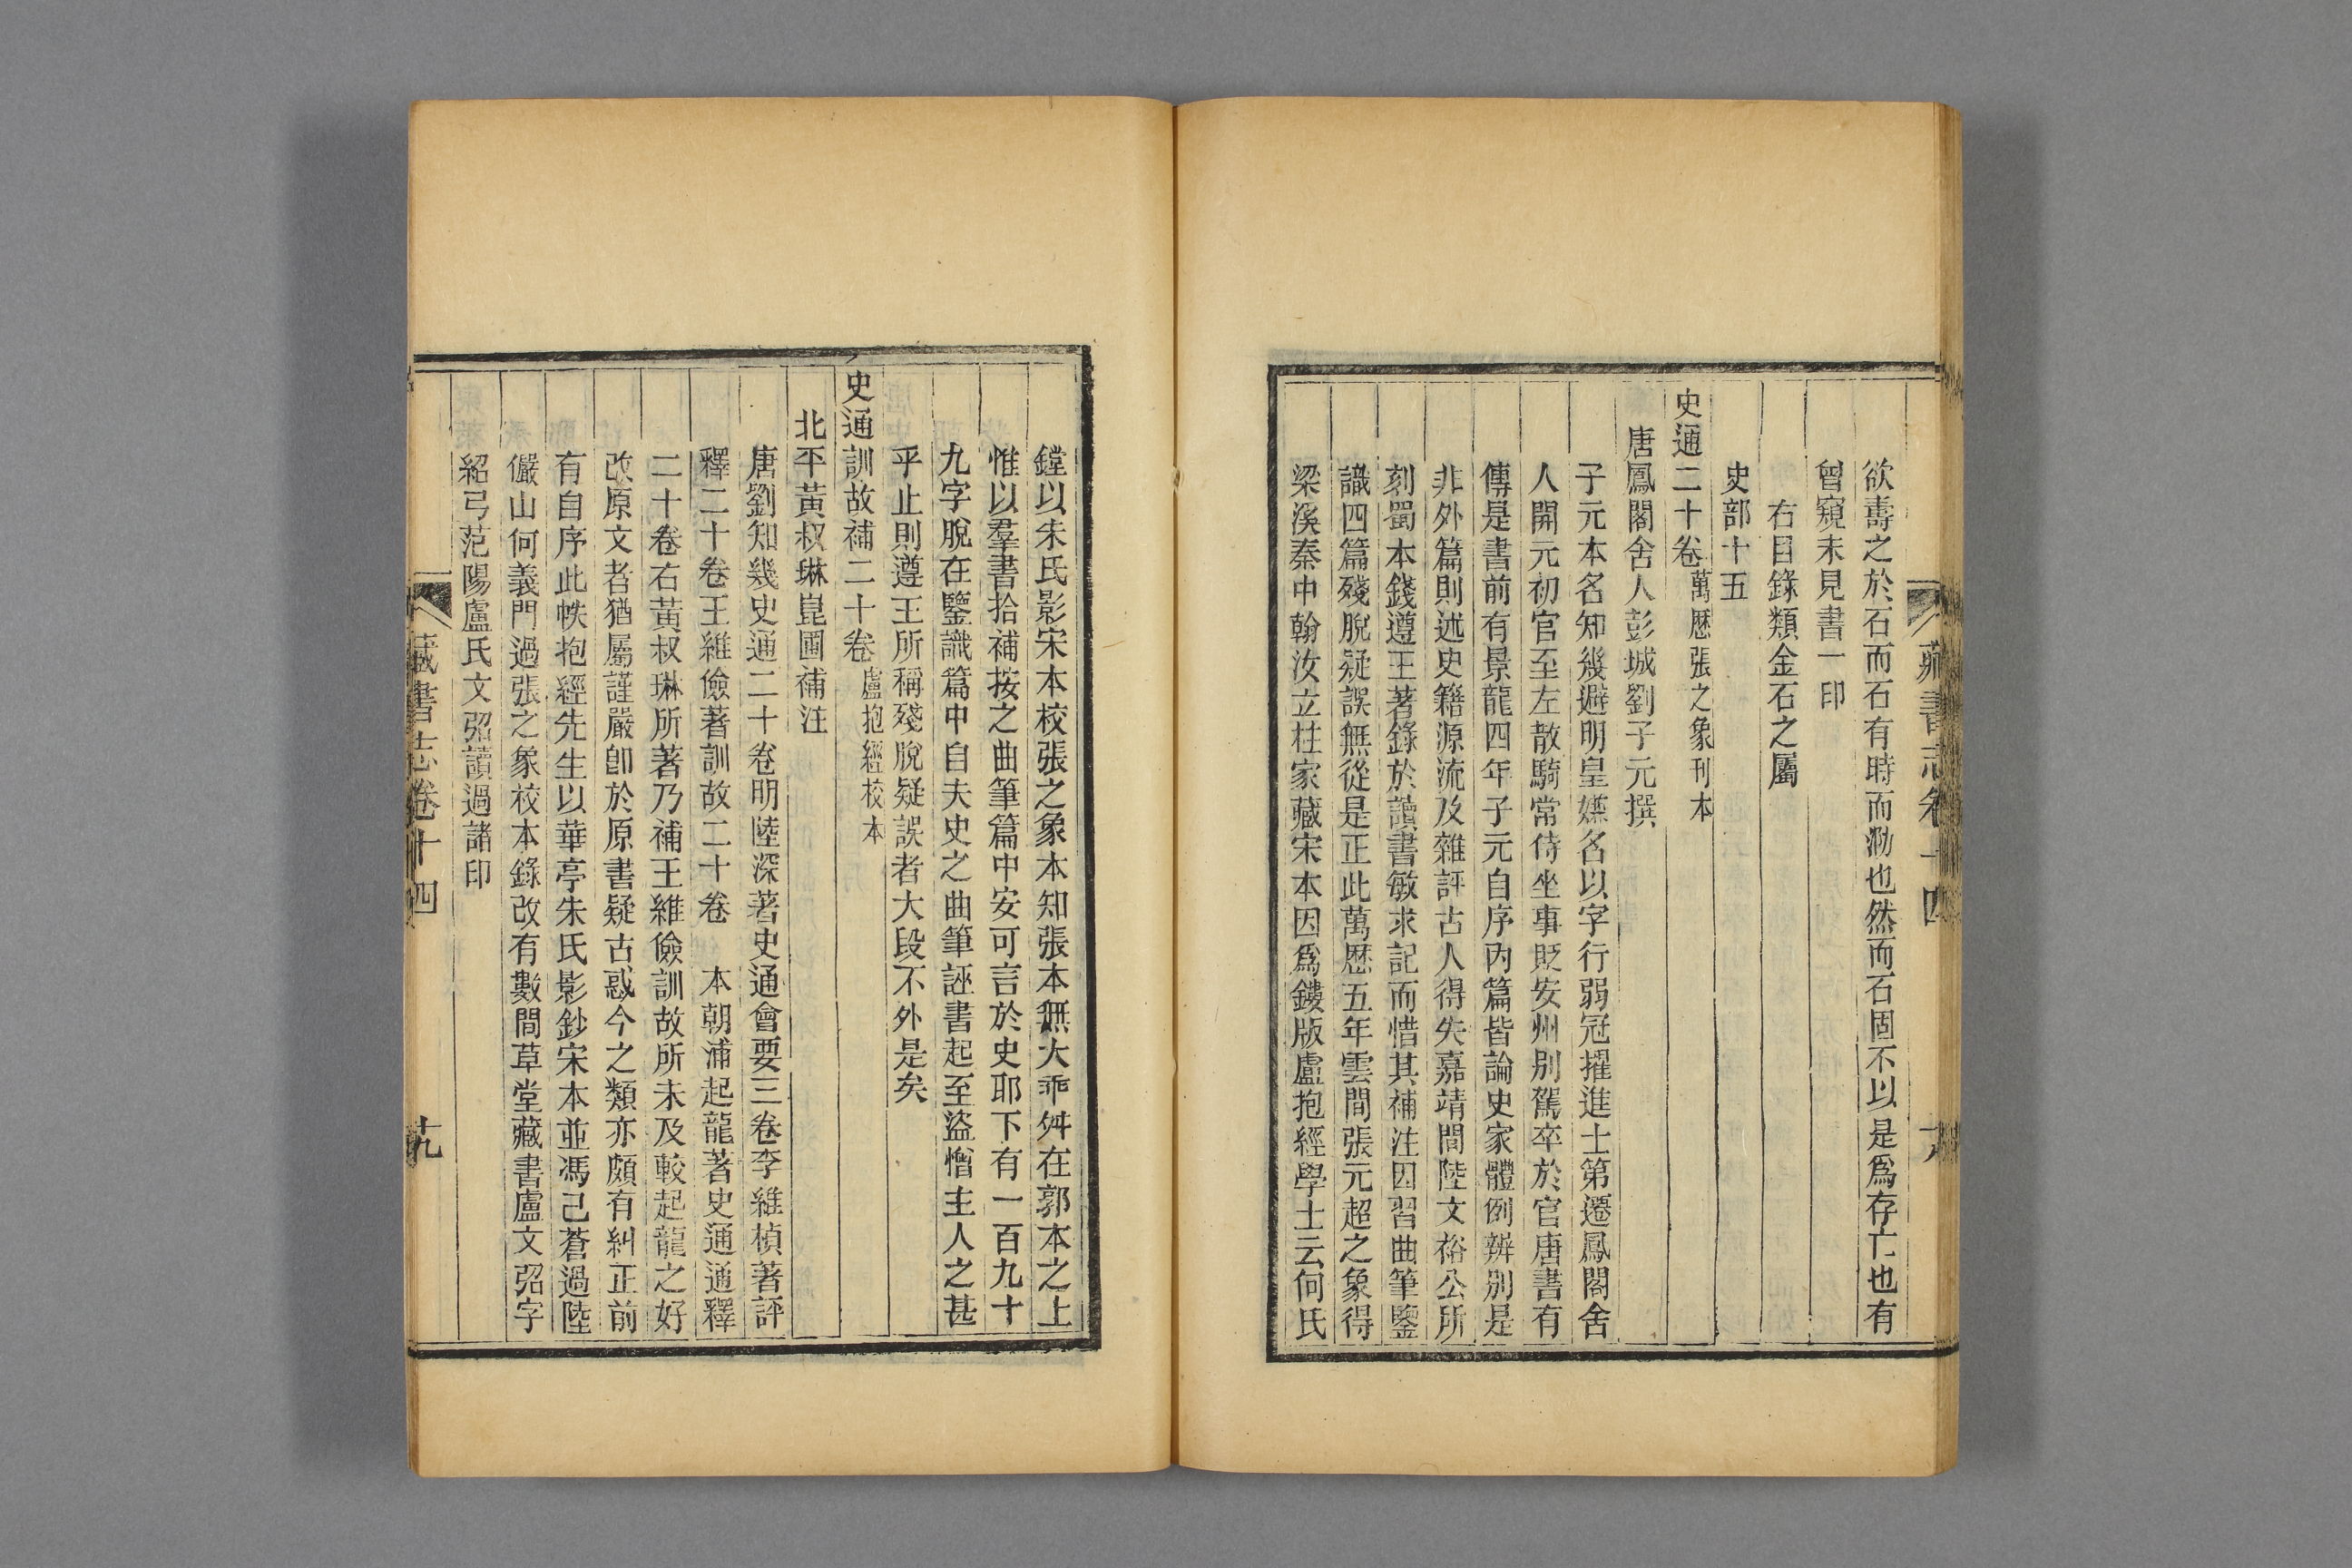 藏書志卷十四
欲壽之於石而石有時而泐也然而石固不以是爲存亡也有
曾窺未見書一印
右目錄類金石之屬
史部十五
史通二十卷萬厯張之象刊本
唐鳳閣舍人彭城劉子元撰
子元本名知幾避明皇嫌名以字行弱冠擢進士第遷鳳閣舍
人開元初官至左散騎常侍坐事貶安州別駕卒於官唐書有
傳是書前有景龍四年子元自序內篇皆論史家體例辨別是
非外篇則述史籍源流及雜評古人得失嘉靖間陸文裕公所
刻蜀本錢遵王著錄於讀書敏求記而惜其補注因習曲筆鑒
識四篇殘脫疑誤無從是正此萬厯五年雲間張元超之象得
梁溪秦中翰汝立柱家藏宋本因爲鏤版盧抱經學士云何氏
鏜以朱氏影宋本校張之象本知張本無大乖舛在郭本之上
惟以羣書拾補按之曲筆篇中安可言於史耶下有一百九十
九字脫在鑒識篇中自夫史之曲筆誣書起至盜憎主人之甚
乎止則遵王所稱殘脫疑誤者大段不外是矣
史通訓故補二十卷盧抱經校本
北平黃叔琳崑圃補注
唐劉知幾史通二十卷明陸深著史通會要三卷李維楨著評
釋二十卷王維儉著訓故二十卷　本朝浦起龍著史通通釋
二十卷右黃叔琳所著乃補王維儉訓故所未及較起龍之好
改原文者猶屬謹嚴卽於原書疑古惑今之類亦頗有糾正前
有自序此帙抱經先生以華亭朱氏影鈔宋本並馮己蒼過陸
儼山何義門過張之象校本錄改有數間草堂藏書盧文弨字
紹弓范陽盧氏文弨讀過諸印
藏書志卷十四
十九